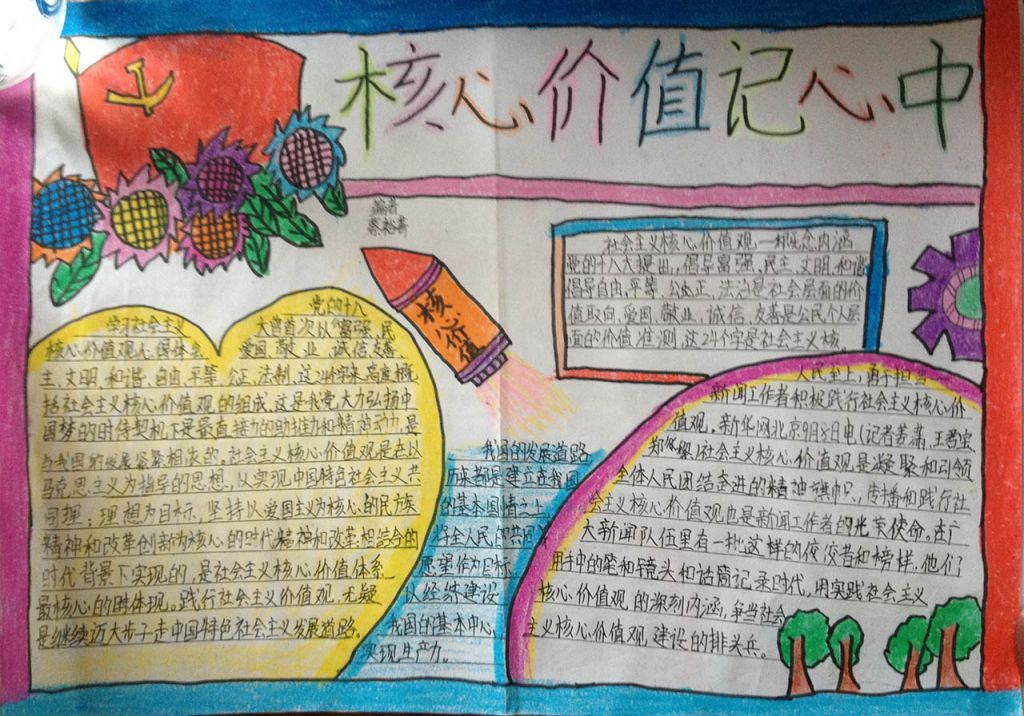 核心价值记心中
编者
蔡裕菁
核心价值
社会主义核心价值观,一根概念内涵
党的十八大提出,倡导富强,民主,文明,和谐
倡导自由,平等,公正,法治是社会层面的价
值取向,爱国,敬业,诚信,友善是公民个人层
面的价值准测,这24个字是社会主义核
党的十八
学习社会主义
大首次以“富强,民
核心价值观人
爱国,敬业,诚信,友善,
主,文明,和谐,自由,平等,公正,法制,这24个字来高度概
括社会主义核心价值观的组成,这是我党大力弘扬中
国梦的时下是最直接力的助推力和精神动力,是
与我国的发展紧紧相依的,社会主义核心价值观是在以
马克思主义为指导的思想,以实现中国特色社会主义共
同理;理想为目标,坚持以爱国主义为核心的民族
精神和改革创新为核心的时代精神和改革相结合的
时代背景下实现的,是社会主义核心价值体系
最核心的体现。践行社会主义价值观,无疑
是继续迈大步子走中国特色社会主义发展道路。
我国的发展道路
历来都是建立在我国
的基本国情之上
全人民的共同
愿望作为目标,
以经续建设
我国的基本中心,
实现生产力。
人民至上,勇于担当
新闻工作者积极践行社会主义核心价
值观,新华网北京9月8日电(记者姜潇,王君宝
社会主义核心价值观是凝聚和引领
全体人民团结奋进的精神旗帜,传播和践行社
会主义核心价值观也是新闻工作者的光荣使命,在广
大新闻队伍里有一批这样的佼佼者和榜样,他们
用手中的笔和镜头和话筒记录时代,用实践社会主义
核心价值观的深刻内涵,争当社会
主义核心价值观建设的排头兵。